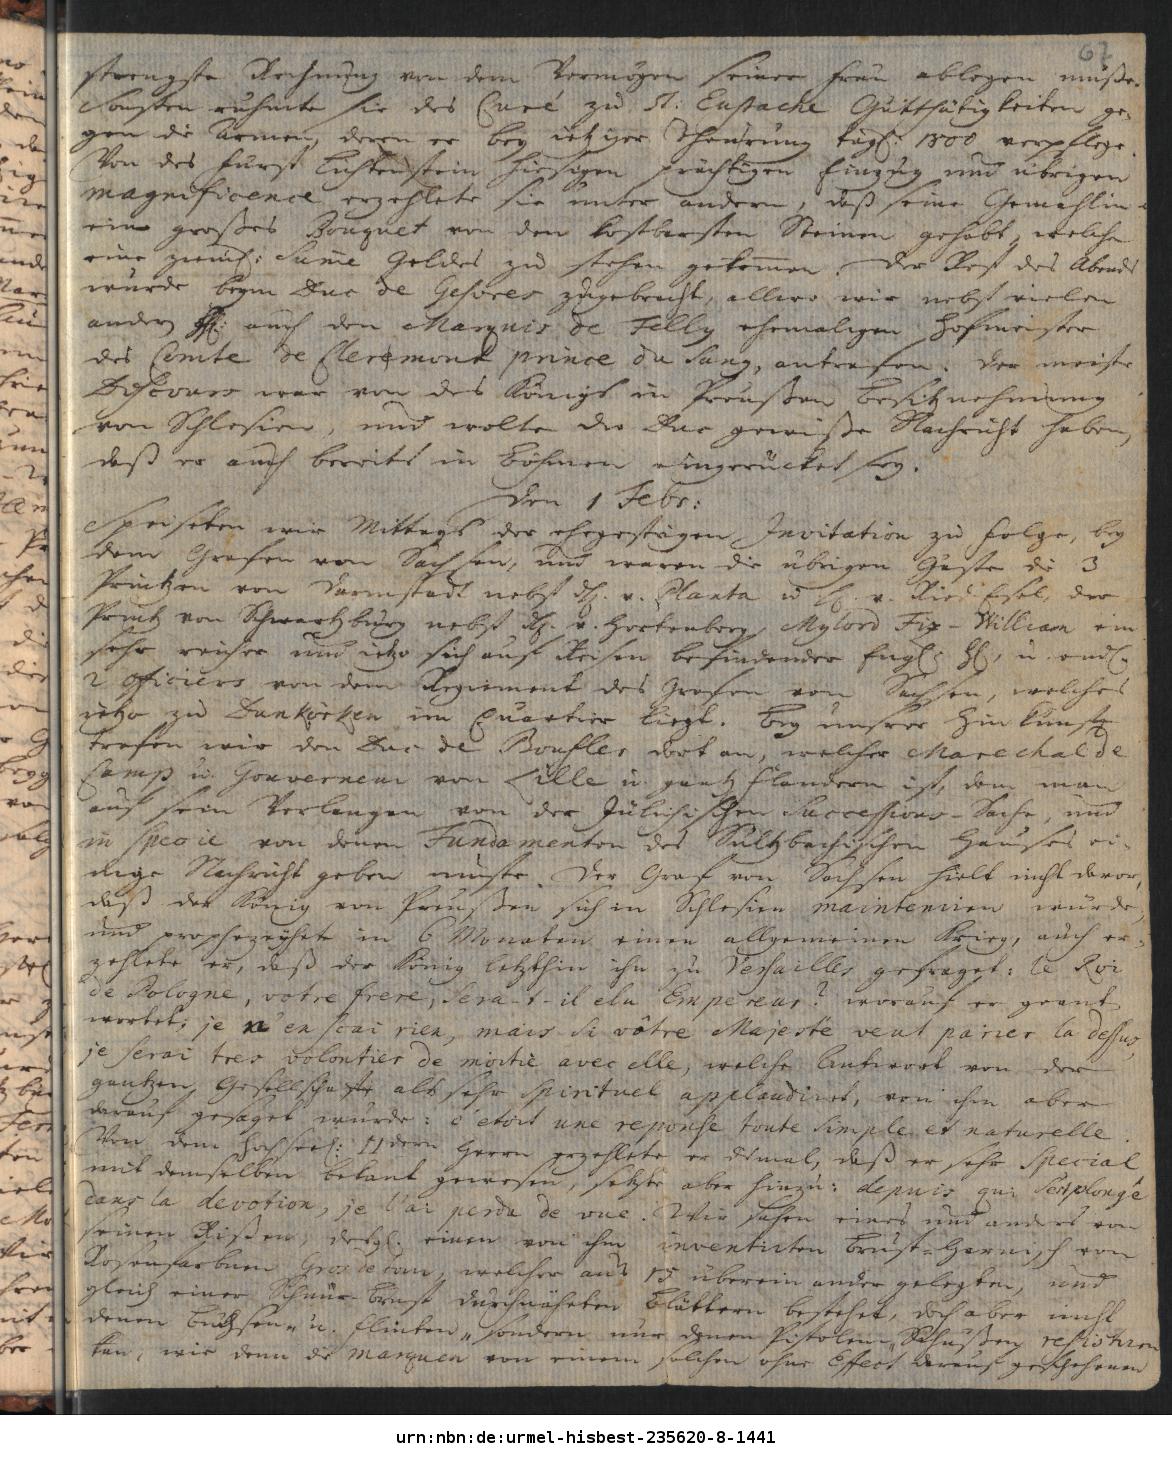 67
strengste Rechnung von dem Vermögen seiner Frau ablegen müße.
Sonsten ruhmte sie des Curé zu St: Eustache Gutthätigkeiten ge-
gen die Armen, deren er bey ietziger Theurung tägl: 1800 verpflege.
Von des Fürst Lichtenstein hiesigen prächtigen Einzug und übrigen
magnificence erzehlete sie unter andern, daß seine Gemahlin
ein großes Bouquet von den kostbarsten Steinen gehabt, welche
eine ziemL: Summe Geldes zu stehen gekommen. Der Rest des Abends
wurde beym Duc de Gesvres zugebracht, allwo wir nebst vielen
andern auch den Marquis de Felly ehemaligen Hofmeister
des Comte de Clermont prince du Sang, antrafen. Der meiste
Discours war von des Königs in Preußen Besitznehmung
von Schlesien, und wolte der Duc gewiße Nachricht haben,
daß er auch bereits in Böhmen eingerücket sey.
Den 1 Febr:
Speiseten wir Mittags der ehegestrigen Invitation zu folge, bey
dem Grafen von Sachsen, und waren die übrigen Gäste die 3
Printzen von Darmstadt nebst H. v. Planta u H. v. Ried Esel, der
Printz von Schwartzburg nebst H. v. Hertenberg, Mylord Fix-William ein
sehr reicher und ietzo sich auf Reisen befindender Engl: H, u. endl:
2 officiers von dem Regiment des Grafen von Sachsen, welches
ietzo zu Dunkerken im Quartier liegt. Bey unsrer Hinkunft
trafen wir den Duc de Boufler dort an, welcher Marechal de
Camp u. Gouverneur von Lille u. gantz Flandern ist, dem man
auf sein Verlangen von der Jülichischen Successions-Sache, und
in specie von denen Fundamenten des Sultzbachischen Hauses ei-
nige Nachricht geben muste. Der Graf von Sachsen hielt nicht davor,
daß der König von Preußen sich in Schlesien mainteniren würde,
und propheceyhete in 6 Monaten einen allgemeinen Krieg, auch er-
zehlete er, daß der König letzthin ihn zu Versailles gefraget: le Roi
de Pologne, votre frere, sera-t-il elu Empereur? worauf er geant
wortet: je n'en scai rien, mais si vôtre Majesté veut parier la dessus,
je serai tres volontier de moitié avec elle, welche Antwort von der
gantzen Gesellschafft als sehr spirituel applaudiret, von ihm aber
darauf gesaget wurde: c'etoit une reponse toute simple et naturelle.
Von dem Hochseel: Herrn erzehlete er dißmal, daß er sehr special
mit demselben bekant gewesen, setzte aber hinzu: depuis qu'il s'est plongé
dans la devotion, je l'ai perdu de vue. Wir sahen eines und anders von
seinen Rißen, desgl. einen von ihm inventirten Brust-Harnisch von
Rosenfarbnen Grosdetour, welcher aus 15 über einander gelegten, und
gleich einer Schnür-Brust durchnäheten Blättern bestehet, doch aber nicht
denen Büchsen- u. Flinten- sondern nur denen Pistolen-Schußen resistiren
kan, wie denn die marquen von einem solchen ohne Effect darauf geschehenen
urn:nbn:de:urmel-hisbest-235620-8-1441